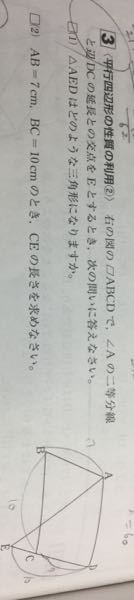 3 〈平行四辺形の性質の利用②〉 右の図の□ABCDで、∠Aの二等分線
と辺DCの延長との交点をEとするとき、次の問いに答えなさい。
□(1) △AEDはどのような三角形になりますか。
□(2) AB=7cm, BC=10cmのとき、CEの長さを求めなさい。
A
B
C
D
E
7
10
=60